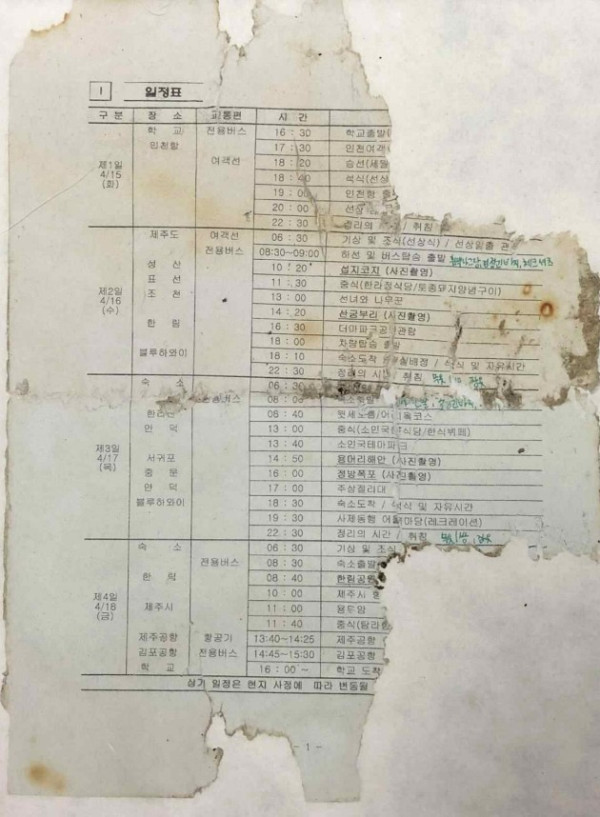 1 일정표
구 분 장 소 교통편 시 간
제1일 4/15 (화)
학 교 전용버스 16 : 30 학교출발
인천항 17 : 30 인천여객
여객선 18 : 20 승선(세월
18 : 40 석식(선상
19 : 00 인천항 출
20 : 00 선상
22 : 30 정리의 시간 / 취침
제2일 4/16 (수)
제주도 여객선 06 : 30 기상 및 조식(선상식) / 선상일출 관
전용버스 08:30~09:00 하선 및 버스탑승 출발
성 산 10 : 20 섭지코지 (사진촬영)
표 선 11 : 30 중식(한라정식당/토종돼지양념구이)
조 천 13 : 00 선녀와 나무꾼
14 : 20 산굼부리 (사진촬영)
한 림 16 : 30 더마파크공연관람
18 : 00 차량탑승 출발
블루하와이 18 : 10 숙소도착 / 실배정 / 석식 및 자유시간
22 : 30 정리의 시간 / 취침
제3일 4/17 (목)
숙 소 06 : 30
전용버스 08 : 00 숙소출발
한라산 08 : 40 윗세오름/어리목코스
안 덕 13 : 00 중식(소인국 식당/한식뷔페)
13 : 40 소인국테마파크
서귀포 14 : 50 용머리해안 (사진촬영)
중 문 16 : 00 정방폭포 (사진촬영)
안 덕 17 : 00 주상절리대
블루하와이 18 : 30 숙소도착 / 석식 및 자유시간
19 : 30 사제동행 어울마당(레크레이션)
22 : 30 정리의 시간 / 취침
제4일 4/18 (금)
숙 소 06 : 30 기상 및 조식
전용버스 08 : 30 숙소출발
한 덕 08 : 40 한림공원
10 : 00 제주시
제주시 11 : 00 용두암
11 : 40 중식(탐라
제주공항 항공기 13:40~14:25 제주공항
김포공항 전용버스 14:45~15:30 김포공항
학 교 16 : 00 ~ 학교 도착
상기 일정은 현지 사정에 따라 변동될
- 1 -